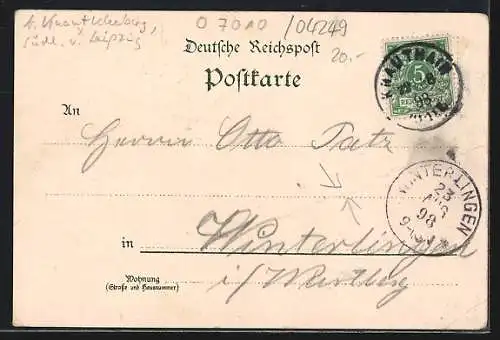 b. Knautkleeberg,
südl. v. Leipzig
O 7010 / 04249
20.-
Deutsche Reichspost
Postkarte
KNAUTHAIN
98
5
An
Herrn Otto Tatz
WINTERLINGEN
23
AUG
98
in Winterlingen
i/ Württbg
Wohnung
(Straße und Hausnummer)